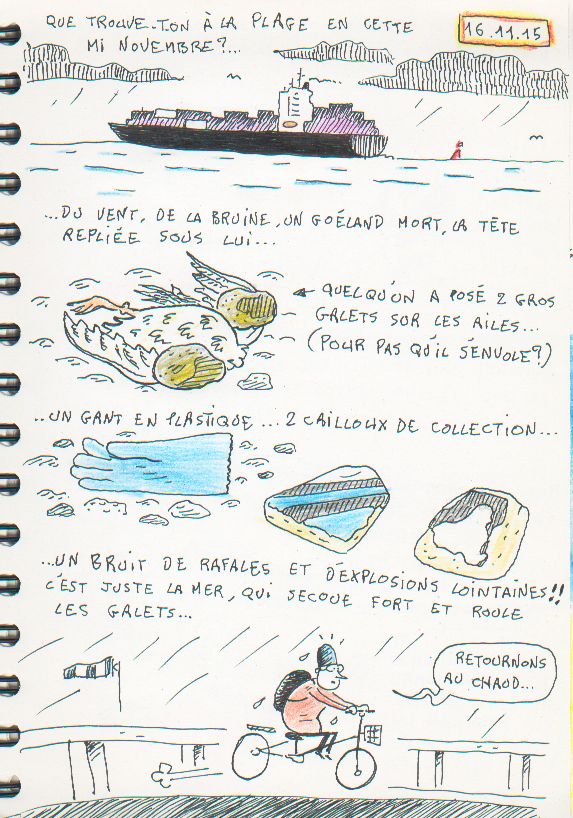 QUE TROUVE-T.ON À LA PLAGE EN CETTE
MI NOVEMBRE?...
16.11.15
...DU VENT, DE LA BRUINE, UN GOÉLAND MORT, LA TÊTE
REPLIÉE SOUS LUI...
← QUELQU'UN A POSÉ 2 GROS
GALETS SUR LES AILES...
(POUR PAS QU'IL S'ENVOLE?)
...UN GANT EN PLASTIQUE... 2 CAILLOUX DE COLLECTION...
...UN BRUIT DE RAFALES ET D'EXPLOSIONS LOINTAINES!!
C'EST JUSTE LA MER, QUI SECOUE FORT ET ROULE
LES GALETS...
RETOURNONS
AU CHAUD...